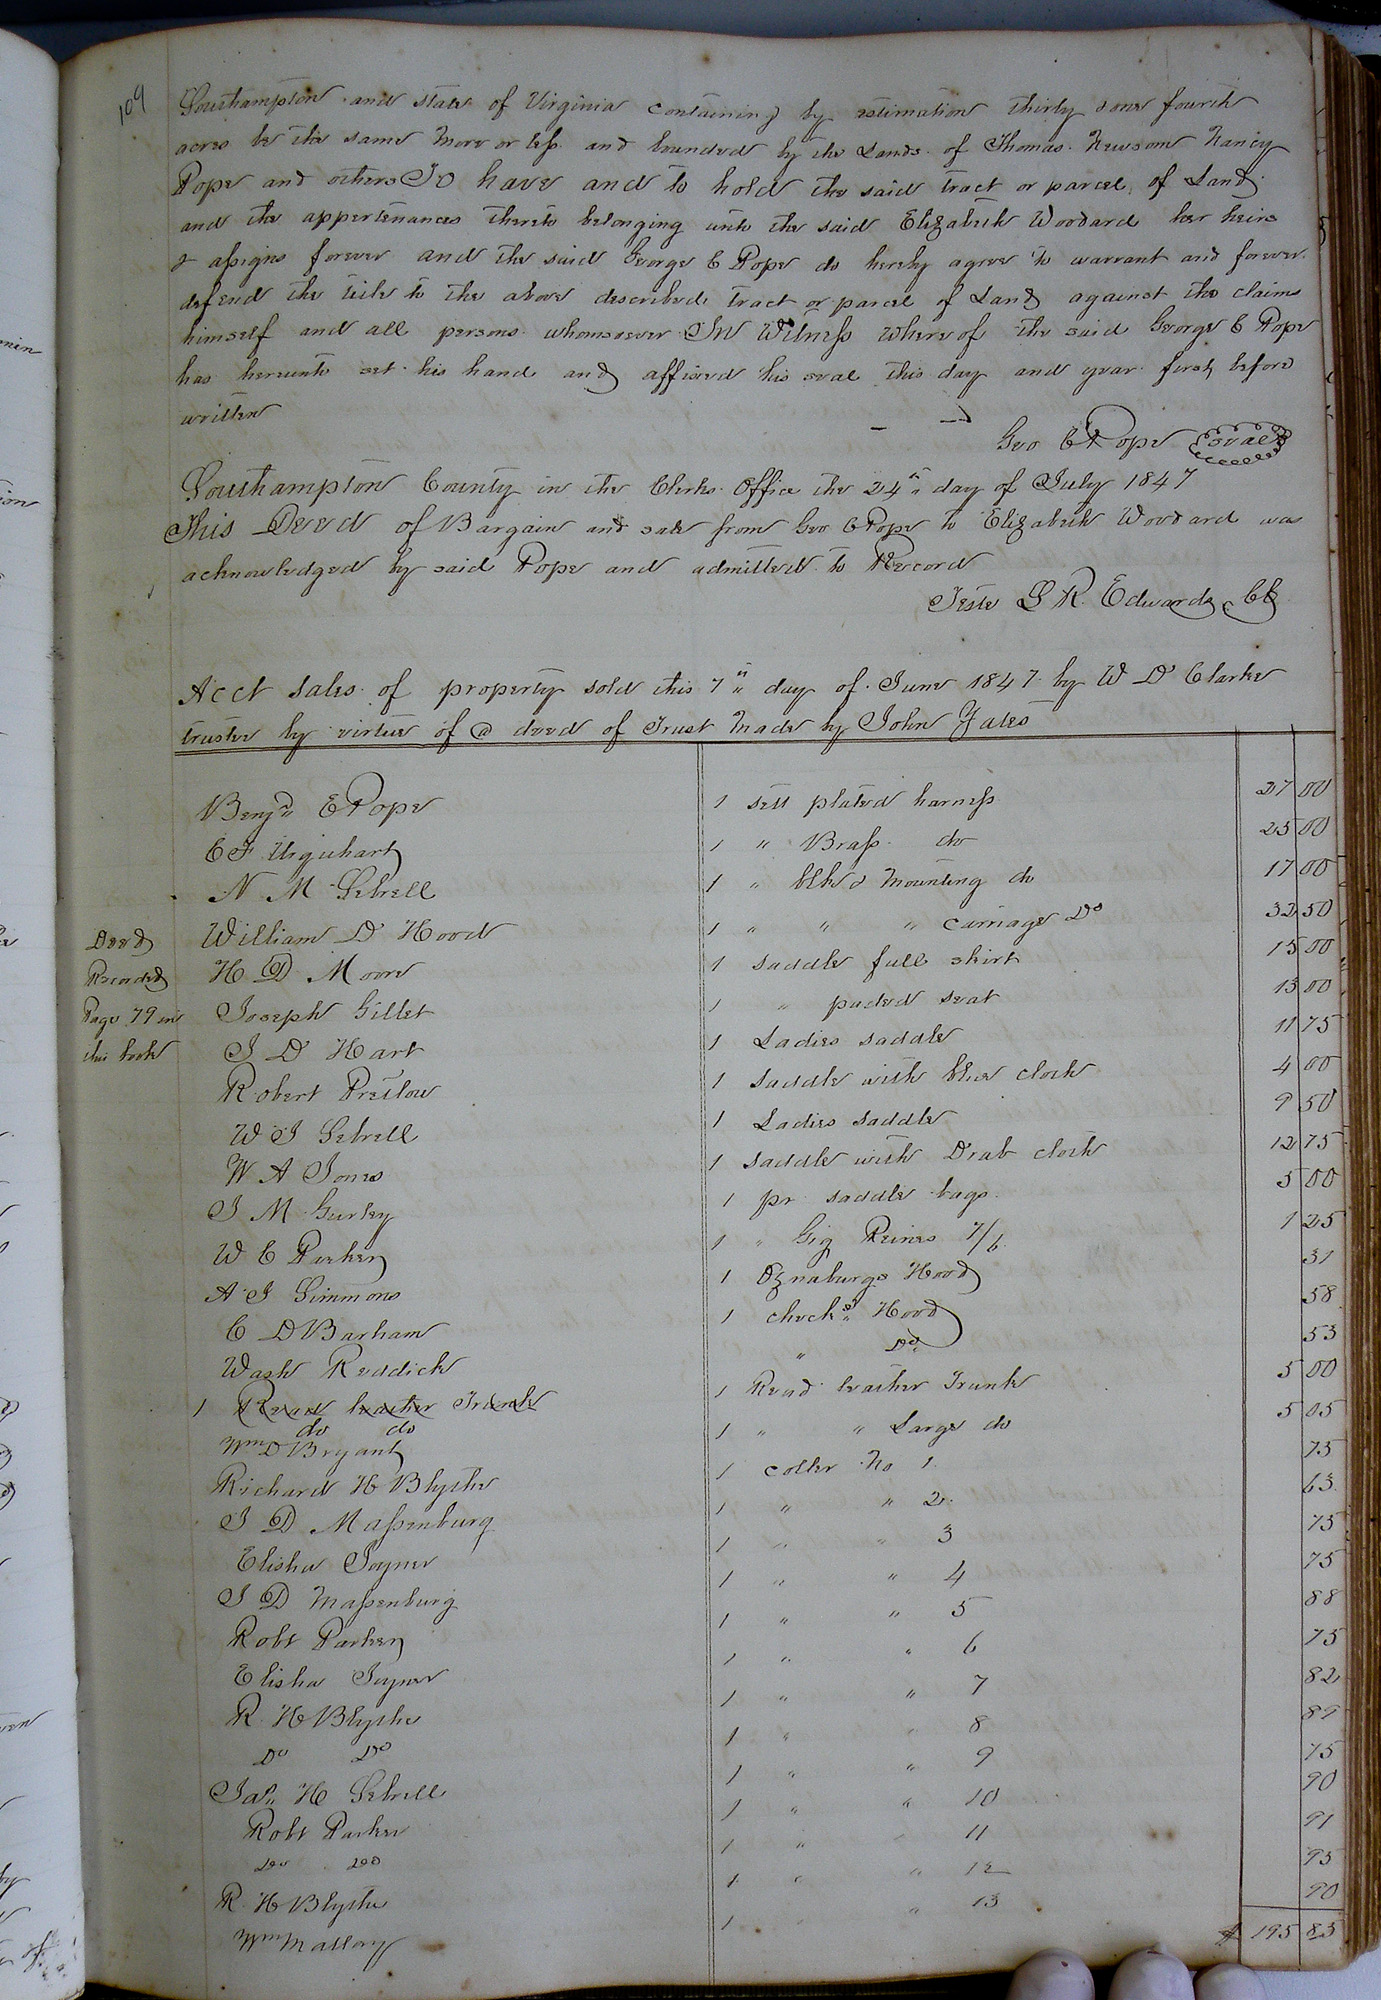 109
Southampton and state of Virginia containing by estimation thirty one fourth
acres be the same more or less and bounded by the Lands of Thomas Newsom Nancy
Pope and others To have and to hold the said tract or parcel of Land
and the appertenances thereto belonging unto the said Elizabeth Woodard her heirs
& assigns forever and the said George E Pope do hereby agree to warrant and forever
defend the title to the above described tract or parcel of Land against the claims
himself and all persons whomsoever In Witness whereof the said George E Pope
has hereunto set his hand and affixed his seal this day and year first before
written
Geo E Pope seal
Southampton County in the Clerks Office the 24" day of July 1847
This Deed of Bargain and sale from Geo E Pope to Elizabeth Woodard was
acknowledged by said Pope and admitted to Record
Teste L R Edwards CC
Acct sales of property sold this 7" day of June 1847 by W D Clarke
trustee by virtue of a deed of Trust made by John Yates
Deed
Recorded
Page 79 in
this book
Benjn E Pope 1 sett plated harness 27 00
C F Urquhart 1 " Brass do 25 00
N M Sebrell 1 " blkd mounting do 17 00
William D Hood 1 " " " carriage Do 32 50
H D Moore 1 saddle full skirt 15 00
Joseph Gillet 1 " paded seat 13 00
J D Hart 1 Ladies saddle 11 75
Robert Pretlow 1 saddle with blue cloth 4 00
W J Sebrell 1 Ladies saddle 9 50
W A Jones 1 saddle with Drab cloth 12 75
J M Gurley 1 pr saddle bags 5 00
W E Parker 1 " Gig Reines 7/6 1 25
A J Simmons 1 Oznaburgs Hood 31
C D Barham 1 checks" Hood 58
Wash Reddick " Do 53
1 Read leather Trunk 1 Read leather Trunk 5 00
do do
Wm D Bryant 1 " " Large do 5 05
Richard H Blythe 1 coller No 1 75
J D Massenburg 1 " " 2 63
Elisha Joyner 1 " " 3 75
J D Massenburg 1 " " 4 75
Robt Parker 1 " " 5 88
Elisha Joyner 1 " " 6 75
R H Blythe 1 " " 7 82
Do Do 1 " " 8 89
Jas H Sebrell 1 " " 9 75
Robt Parker 1 " " 10 90
do do 1 " " 11 91
R H Blythe 1 " " 12 95
Wm Mallory 1 " " 13 90
$ 195 83